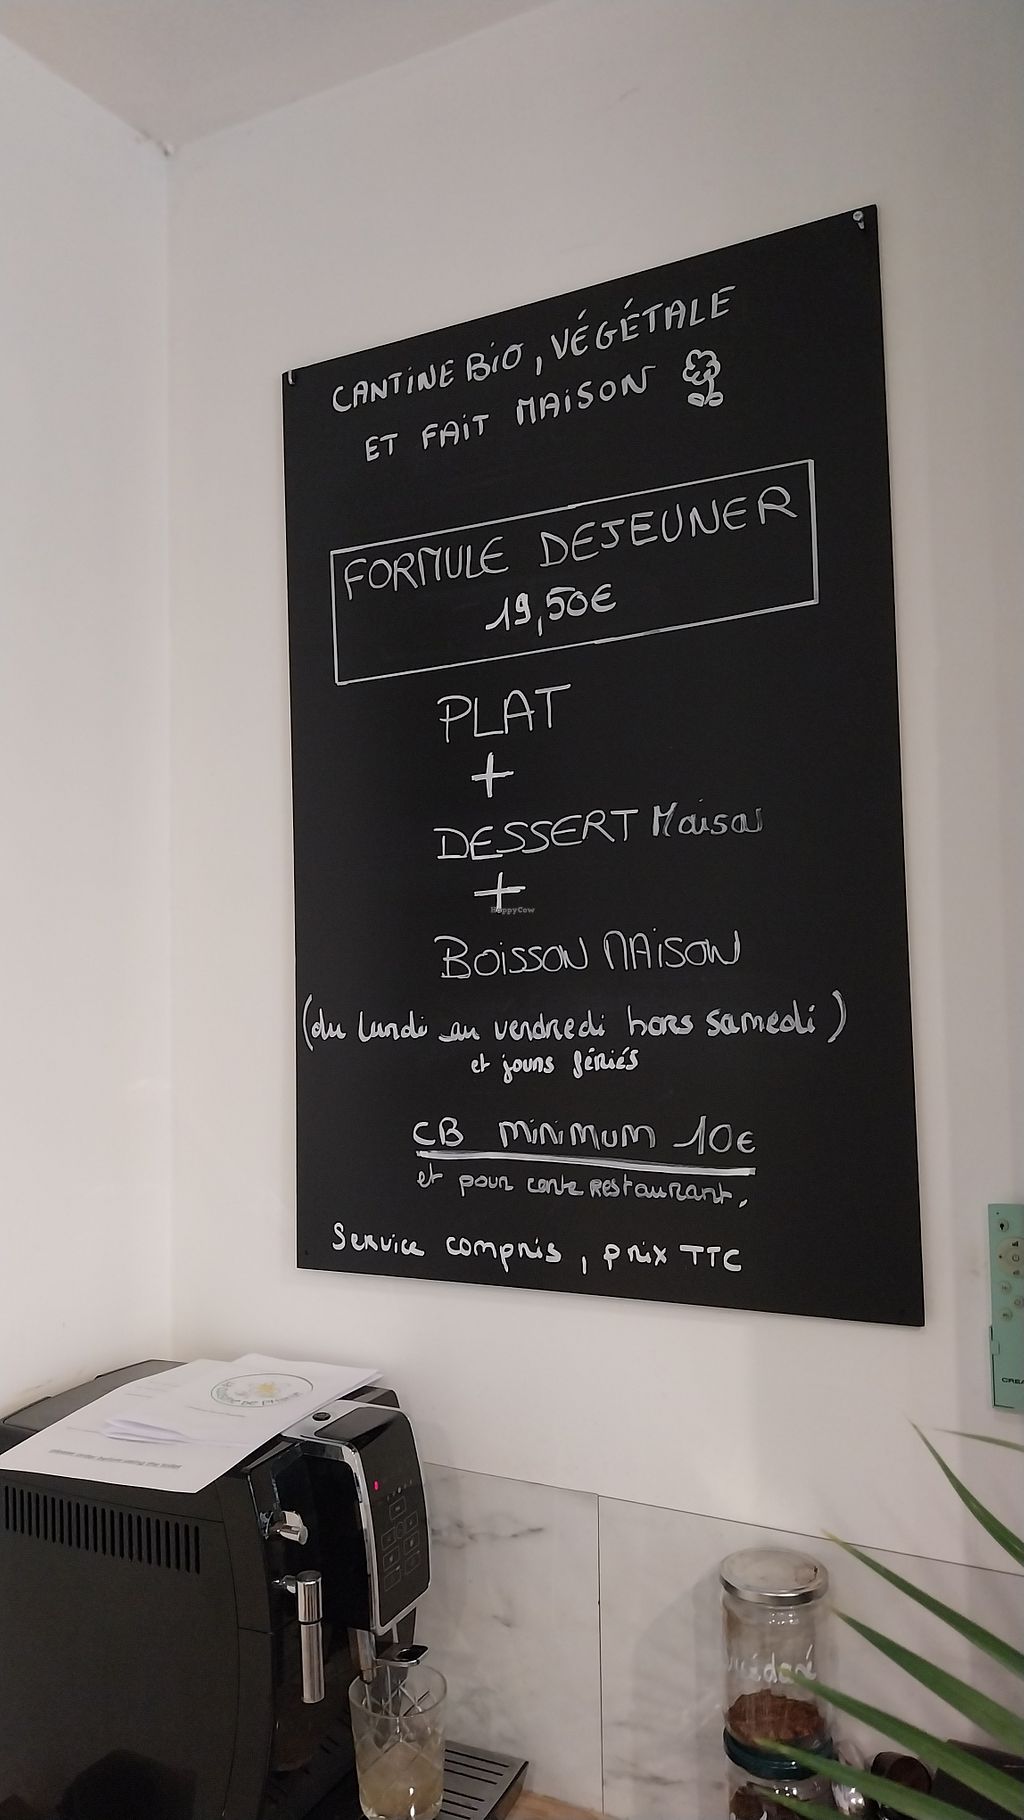 CANTINE BiO, VÉGÉTALE
ET FAIT MAiSON
FORMULE DEJEUNER
19,50€
PLAT
+
DESSERT Maison
+
HappyCow
BOiSSON MAiSON
(du lundi au vendredi hors samedi)
et jours fériés
CB minimum 10€
et pour carte restaurant.
Service compris, prix TTC
CREA